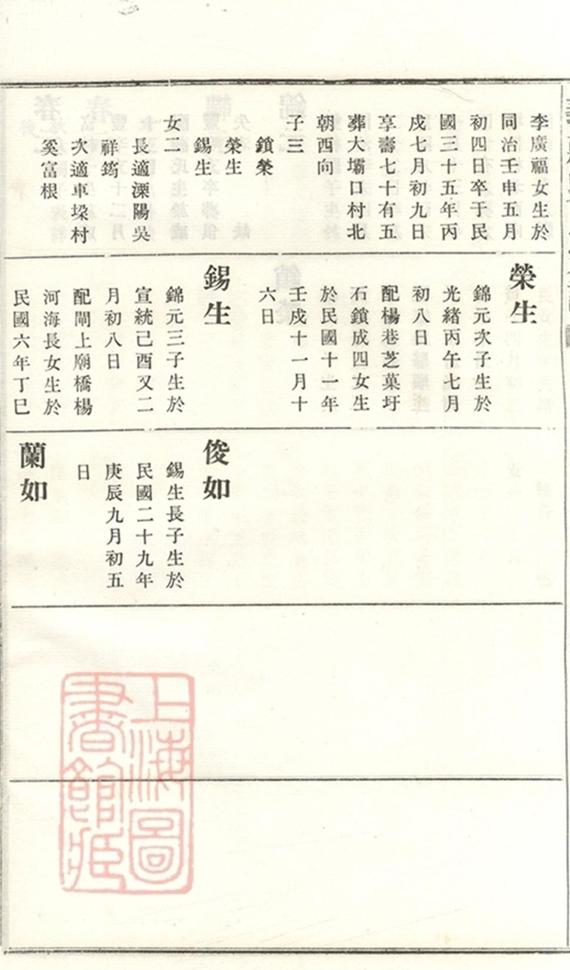 李廣福女生於
同治壬申五月
初四日卒于民
國三十五年丙
戌七月初九日
享壽七十有五
葬大壩口村北
朝西向
子三
鎖榮
榮生
錫生
女二
長適溧陽吳
祥筠
次適車垛村
奚富根
榮生
錦元次子生於
光緒丙午七月
初八日
配楊巷芝菓圩
石鎖成四女生
於民國十一年
壬戌十一月十
六日
錫生
錦元三子生於
宣統己酉又二
月初八日
配閘上廟橋楊
河海長女生於
民國六年丁巳
俊如
錫生長子生於
民國二十九年
庚辰九月初五
日
蘭如
上海圖
書館藏